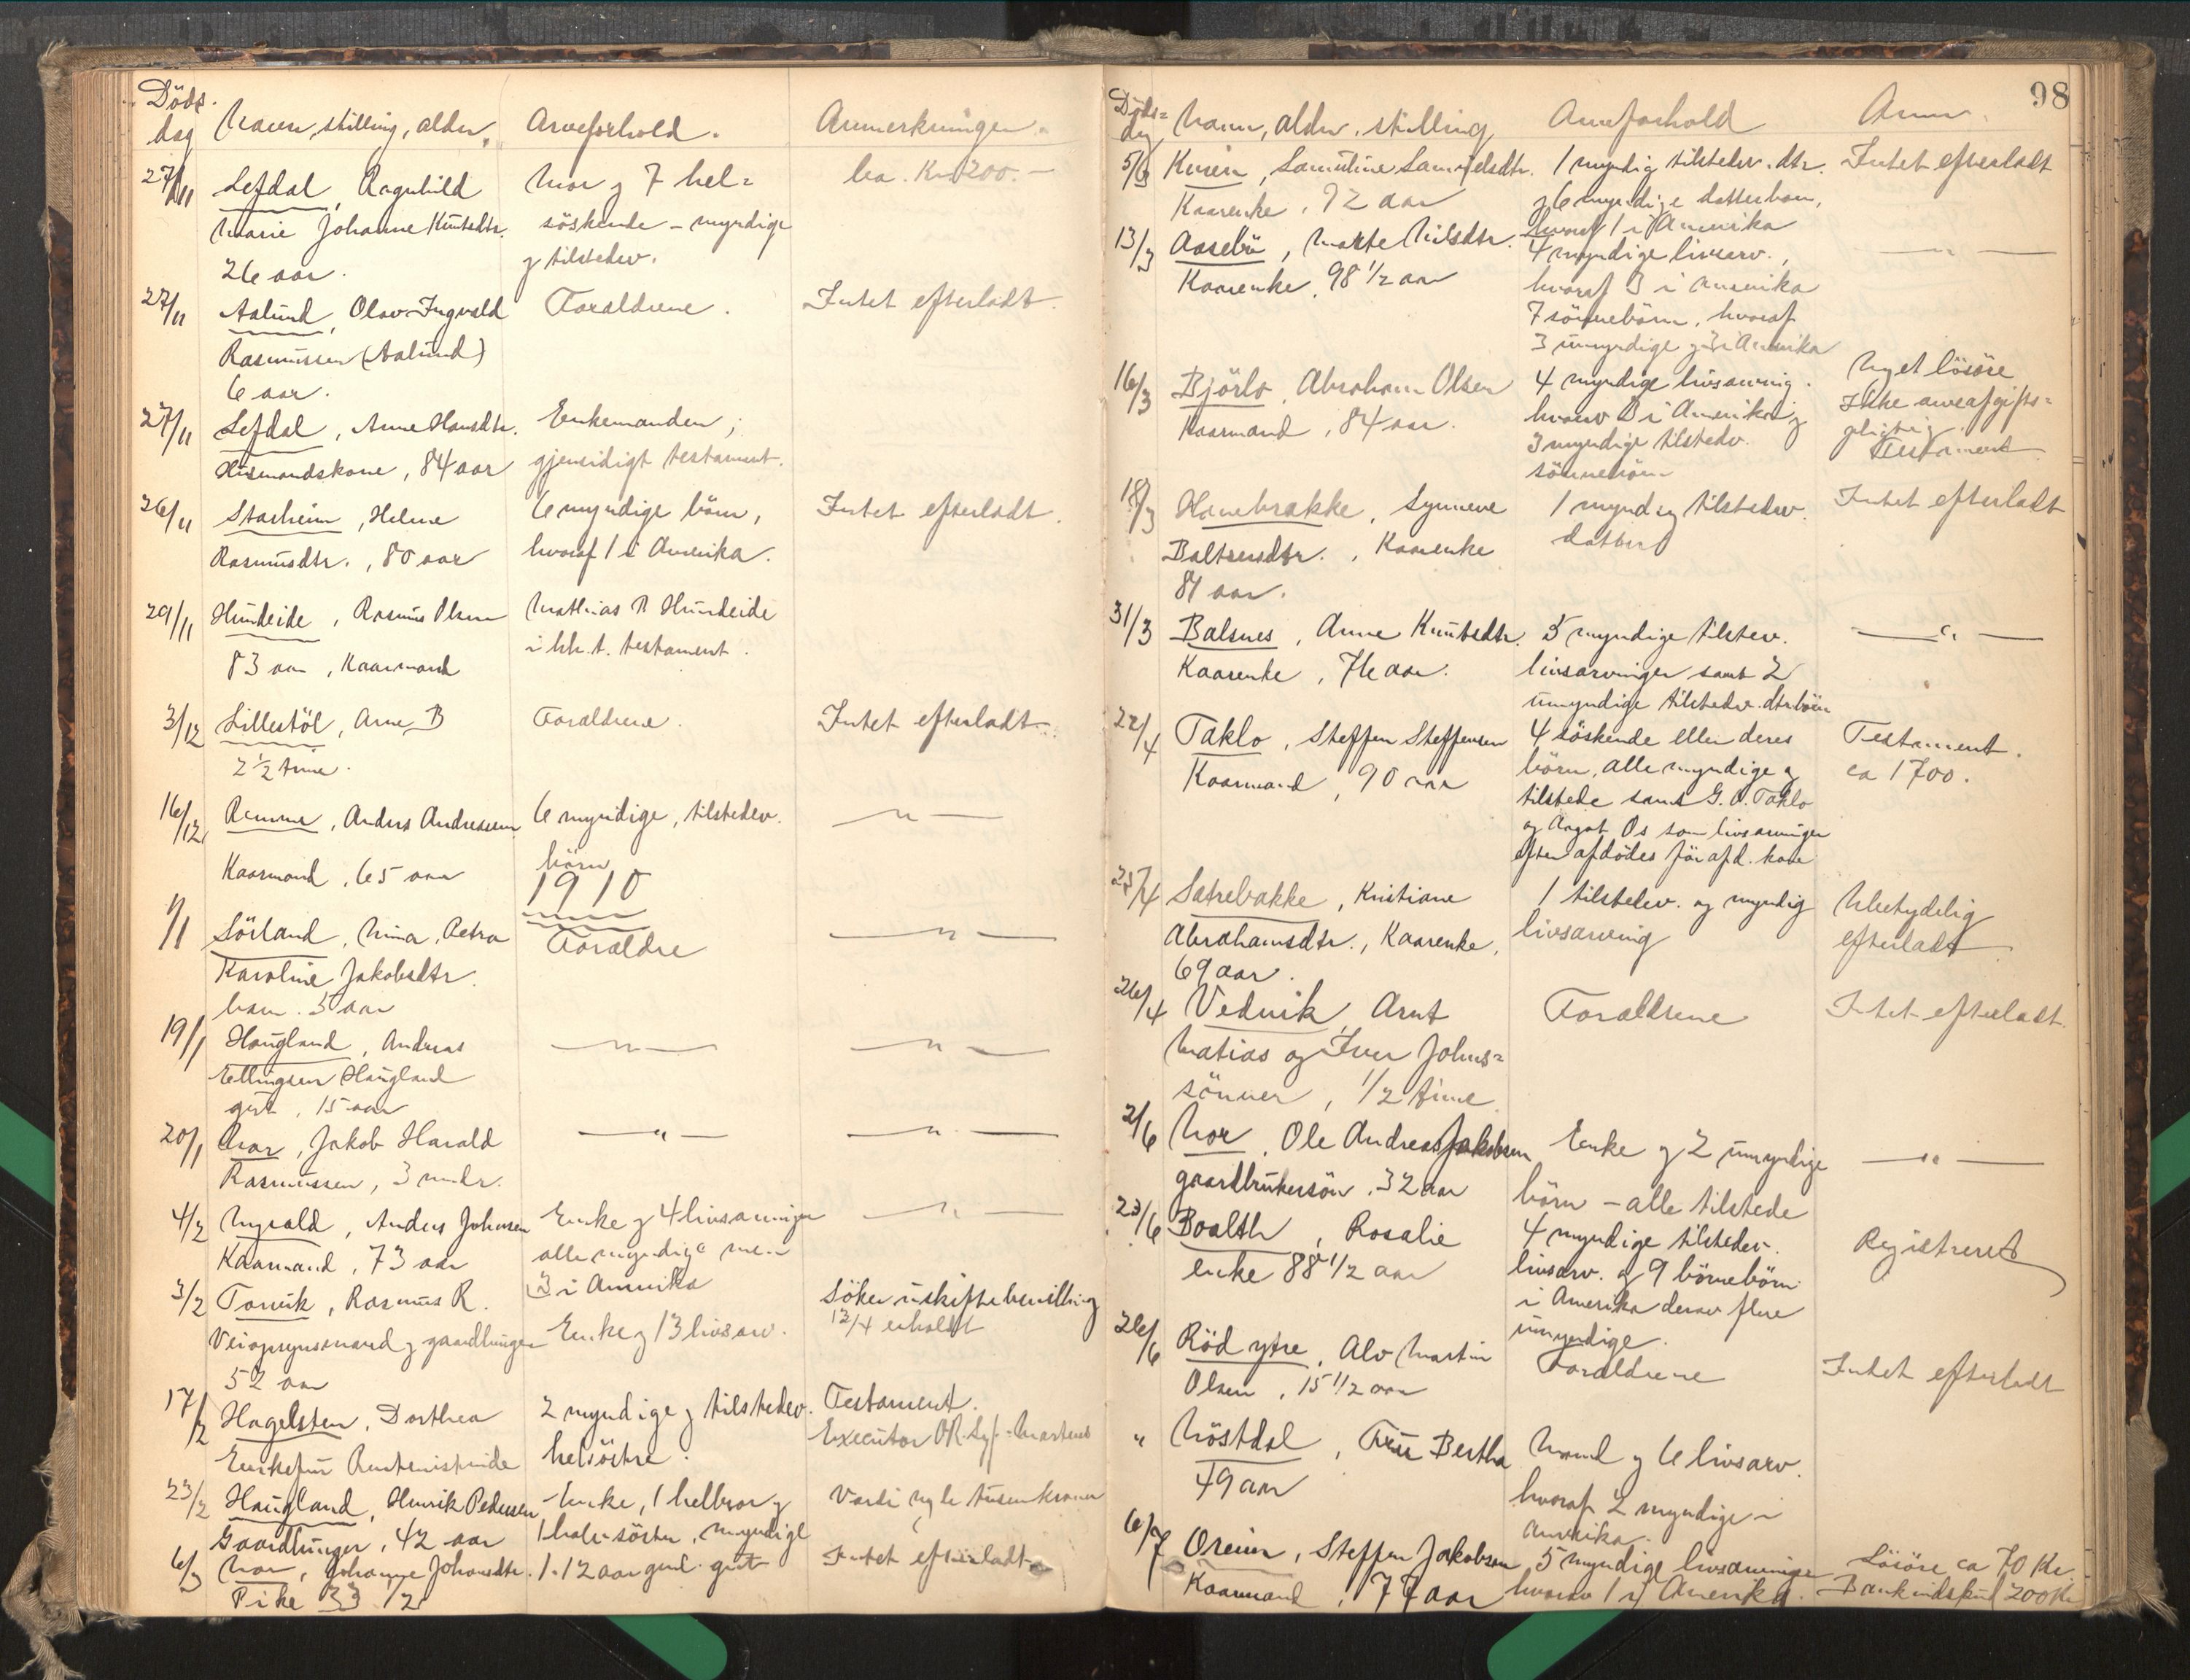 Döds-
dag
Navn, stilling, alder.
Arveforhold.
Anmerkninger.
27/11
Lefdal, Ragnhild
Marie Johanne Knutsdtr.
26 aar.
Mor og 7 hel-
söskende - myndige
og tilstedev.
ca. Kr 200.-
27/11
Aalund, Olav Ingvald
Rasmussen (Aalund)
6 aar.
Forældrene.
Intet efterladt.
27/11
Lefdal, Anne Hansdtr.
Husmandskone, 84 aar
Enkemanden;
gjensidigt testament.
26/11
Starheim, Helene
Rasmusdtr., 80 aar
6 myndige börn,
hvoraf 1 i Amerika.
Intet efterladt.
29/11
Hundeide, Rasmus Olsen
83 aar, Kaarmand
Mathias R Hundeide
i hh. t. testament.
3/12
Lillestöl, Arne B
2 1/2 time.
Forældrene.
Intet efterladt.
16/12
Remme, Anders Andreassen
Kaarmand, 65 aar
6 myndige, tilstedev.
börn
— " —
1910
1/1
Sörland, Nina, Petra
Karoline Jakobsdtr.
barn. 5 aar
Forældre
— " —
19/1
Haugland, Andreas
Ellingsen Haugland
gut, 15 aar
— " —
— " —
20/1
Aar, Jakob Harald
Rasmussen, 3 mndr.
— " —
— " —
4/2
Myrold, Anders Johnsen
Kaarmand, 73 aar
Enke og 4 livsarvinger
alle myndige men
3 i Amerika
— " —
3/2
Torvik, Rasmus R.
Veiopsynsmand og gaardbruger
52 aar
Enke og 13 livsarv.
Söker uskiftebevilling
12/4 erholdt
17/2
Hagelsten, Dorthea
Enkefru Rentenistinde
2 myndige og tilstedev.
helsöstre.
Testament.
Executor OR. Martens
23/2
Haugland, Henrik Pedersen
Gaardbruger, 42 aar
Enke, 1 helbror og
1 halvsöster, myndige
6/3
Mor, Johanne Johansdtr.
Pike 33 1/2
1. 12 aar gml. gut
Intet efterladt
98
Döds-
dag
Navn, alder, stilling
Arveforhold
Anm.
5/3
Kvien, Samuline Samuelsdtr.
Kaarenke, 92 aar
1 myndig tilstedev. dtr.
og 6 myndige datterbarn,
hvoraf 1 i Amerika
Intet efterladt
13/3
Aasebö, Marte Nilsdtr.
Kaarenke, 98 1/2 aar
4 myndige livsarv.,
hvoraf 3 i Amerika
7 sönnebörn, hvoraf
3 umyndige og 3 i Amerika
— " —
16/3
Björlo, Abraham Olsen
Kaarmand, 84 aar.
4 myndige livsarving.
hvorav 3 i Amerika og
3 myndige tilstedv.
sönnebörn
Noget lösöre
Ikke arveafgifts-
pligtig.
Testament
18/3
Hanebrække, Synneve
Baltsersdtr., Kaarenke
81 aar.
1 myndig tilstedev.
datter
Intet efterladt
31/3
Balsnes, Anne Knutsdtr.
Kaarenke, 76 aar.
5 myndige tilstev.
livsarvinger samt 2
umyndige tilstedv. dtr.börn
— " —
22/4
Taklo, Steffen Steffensen
Kaarmand, 90 aar
4 söskende eller deres
börn, alle myndige og
tilstede samt G. O. Taklo
og Aagot Os som livsarvinger
efter afdödes för afd. kone
Testament.
ca 1700.
25/4
Sætrebakke, Kristiane
Abrahamsdtr., Kaarenke,
69 aar.
1 tilstedev. og myndig
livsarving
Ubetydelig
efterladt
26/4
Vedvik, Arnt
Matias og Iver Johns-
sönner, 1/2 time
Forældrene
Intet efterladt.
2/6
Mor, Ole Andreas Jakobsen
gaardbrukersön, 32 aar
Enke og 2 umyndige
börn - alle tilstede
— " —
23/6
Boalth, Rosalie
enke 88 1/2 aar
4 myndige tilstedev.
livsarv. og 9 börnebörn
i Amerika derav flere
umyndige.
Registreret
26/6
Röd ytre, Alv Martin
Olsen, 15 1/2 aar
Forældrene
Intet efterladt
"
Nöstdal, Fru Bertha
49 aar
Mand og 6 livsarv.
hvoraf 2 myndige i
Amerika.
6/7
Oreim, Steffen Jakobsen
Kaarmand, 77 aar
5 myndige livsarvinger
hvorav 1 i Amerika.
Lösöre ca 70 Kr.
Bankindskud 200 Kr